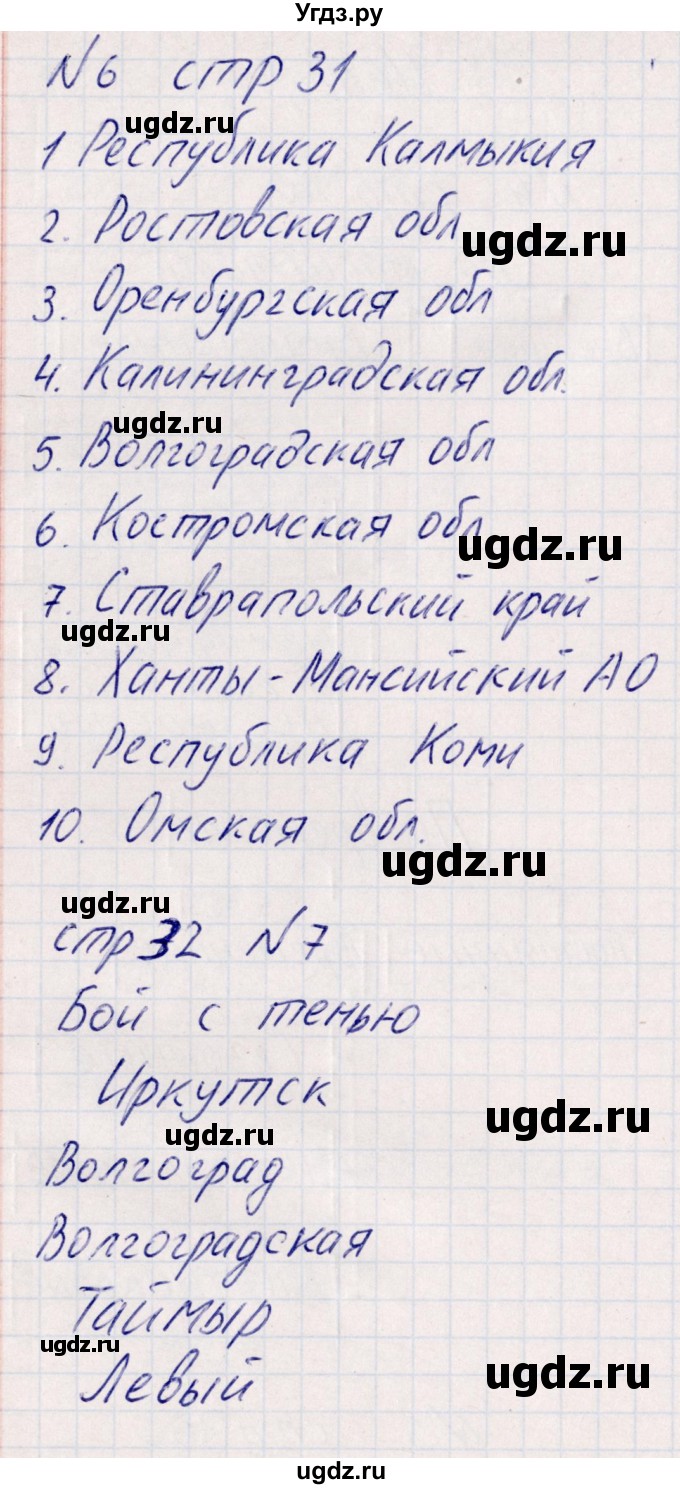 Угдз.ру
N6 стр 31
ugdz.ru
1 Республика Калмыкия
2. Ростовская обл
ugdz.ru
3. Оренбургская обл
4. Калининградская обл.
ugdz.ru
5. Волгоградская обл
6. Костромская обл
ugdz.ru
7. Ставрапольский край
ugdz.ru
8. Ханты-Мансийский АО
9. Республика Коми
10. Омская обл.
ugdz.ru
ugdz.ru
стр 32 N7
Бой с тенью
Иркутск
ugdz.ru
ugdz.ru
Волгоград
Волгоградская
Таймыр
ugdz.ru
Левый
ugdz.ru
ugdz.ru